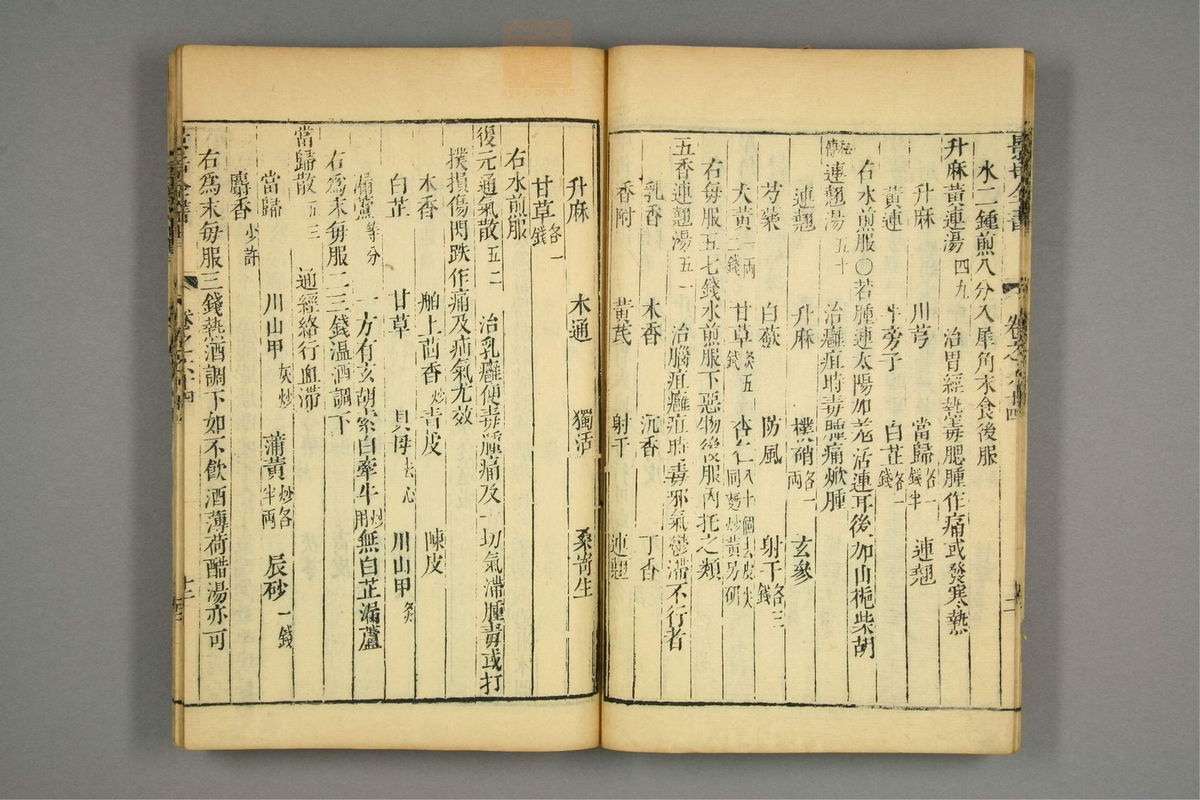 水二鍾煎八分入犀角末食後服
升麻黃連湯 四九 治胃經熱毒腮腫作痛或發寒熱
升麻 川芎 當歸各一錢半 連翹
黃連 牛旁子 白芷各一錢
秘傳連翹湯 五十 治癰疽時毒腫痛焮腫
連翹 升麻 樸硝各一兩 玄參
芍藥 白蘞 防風 射干各三錢
大黃一兩二錢 甘草炙五錢 杏仁八十個去皮尖同麵炒黃另研
右每服五七錢水煎服下惡物後服內托之類
右水煎服○若腫連太陽加羌活連耳後加山梔柴胡
五香連翹湯 五一 治腦疽癰疽時毒邪氣鬱滯不行者
乳香 木香 沉香 丁香
香附 黃芪 射干 連翹
升麻 木通 獨活 桑寄生
甘草各一錢
右水煎服
復元通氣散 五二 治乳癰便毒腫痛及一切氣滯腫毒或打
撲損傷閃跌作痛及疝氣尤效
木香 舶上茴香炒 青皮 陳皮
白芷 甘草 貝母去心 川山甲炙
漏蘆等分 一方有玄胡索白牽牛炒用無白芷漏蘆
右為末每服二三錢溫酒調下
當歸散 五三 通經絡行血滯
當歸 川山甲灰炒 蒲黃炒各半兩 辰砂一錢
麝香少許
右為末每服三錢熱酒調下如不飲酒薄荷醋湯亦可